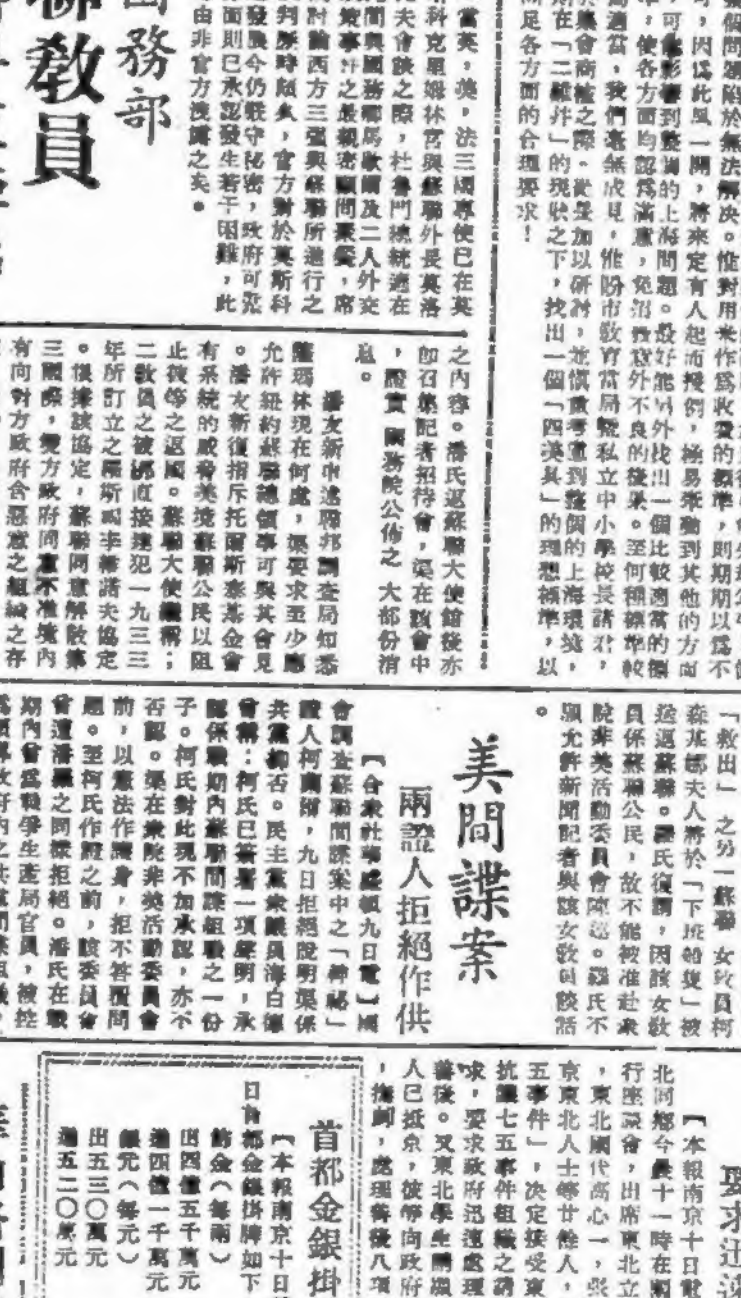 務部
聯教員
當英,美,法三國專使已在莫
斯科克里姆林宮與蘇聯外長莫洛
夫會談之際,杜魯門總統適在
討論西方三強與蘇聯所進行之
發展今仍嚴守祕密,政府可
面則已承認發生若干困難,此
由非官方洩露之矣。
個問題陷於無法解決。惟對用米作爲收費的標準,則期期以爲不
可,因爲此風一開,將來定有人起而援例,極易牽動到其他的方面
,可能影響到整個的上海問題。最好能另外找出一個比較適當的標
準,使各方面均認爲滿意,免招致意外不良的後果。至何種標準較
爲適當,我們毫無成見,惟盼市敎育當局曁私立中小學校長諸君,
於集會商榷之際,從長加以研討,並愼重考慮到整個的上海環境,
在「二難幷」的現狀之下,找出一個「四美具」的理想標準,以
滿足各方面的合理要求!
之內容。潘氏返蘇聯大使館後亦
卽召集記者招待會,渠在該會中
,證實 國務院公佈之 大部份消
息。
潘友新申述聯邦調查局知悉
薩瑪林現在何處,渠要求至少應
允許紐約蘇聯總領事可與其會見
。潘友新復指斥托爾斯泰基金會
有系統的威脅美境蘇聯公民以阻
止彼等之返國。蘇聯大使繼稱:
二敎員之被綁直接違犯一九三三
年所訂立之羅斯福李維諾夫協定
。根據該協定,蘇聯同意解散第
三國際,雙方政府同意不准境內
有向對方政府含惡意之組織之存
「救出」之另一蘇聯 女敎員柯
森基娜夫人將於「下班船隻」被
送返蘇聯。羅氏復謂,因該女敎
員係蘇聯公民,故不能被准赴衆
院非美活動委員會陳述。羅氏不
願允許新聞記者與該女敎員談話
。
美間諜案
兩證人拒絕作供
【合衆社華盛頓九日電】國
會調查蘇聯間諜案中之「神祕」
證人柯爾,九日拒絕說明渠係
共黨與否。民主黨衆議員海白德
曾稱:柯氏已簽署一項聲明,承
認係戰期內蘇聯間諜組織之一份
子。柯氏對此現不加承認,亦不
否認。渠在衆院非美活動委員會
前,以憲法作護身,拒不答覆問
題。至柯氏作證之前,該委員會
曾遭潘羅之同樣拒絕。潘氏在戰
期內曾爲戰學生產局官員,被控
要求迅速
【本報南京十日電】
北同鄉今晨十一時在
行座談會,出席東北立
,東北國代高心一,張
京東北人士等廿餘人,
五事件」,決定接受東
抗議七五事件組織之請
求,要求政府迅速處理
善後。又東北學生請願
人已抵京,彼等向政府
,撫卹,處理善後八項
首都金銀掛
【本報南京十日
日首都金銀掛牌如下
飾金(每兩)
出四億五千萬元
進四億一千萬元
銀元(每元)
出五三〇萬元
進五二〇萬元